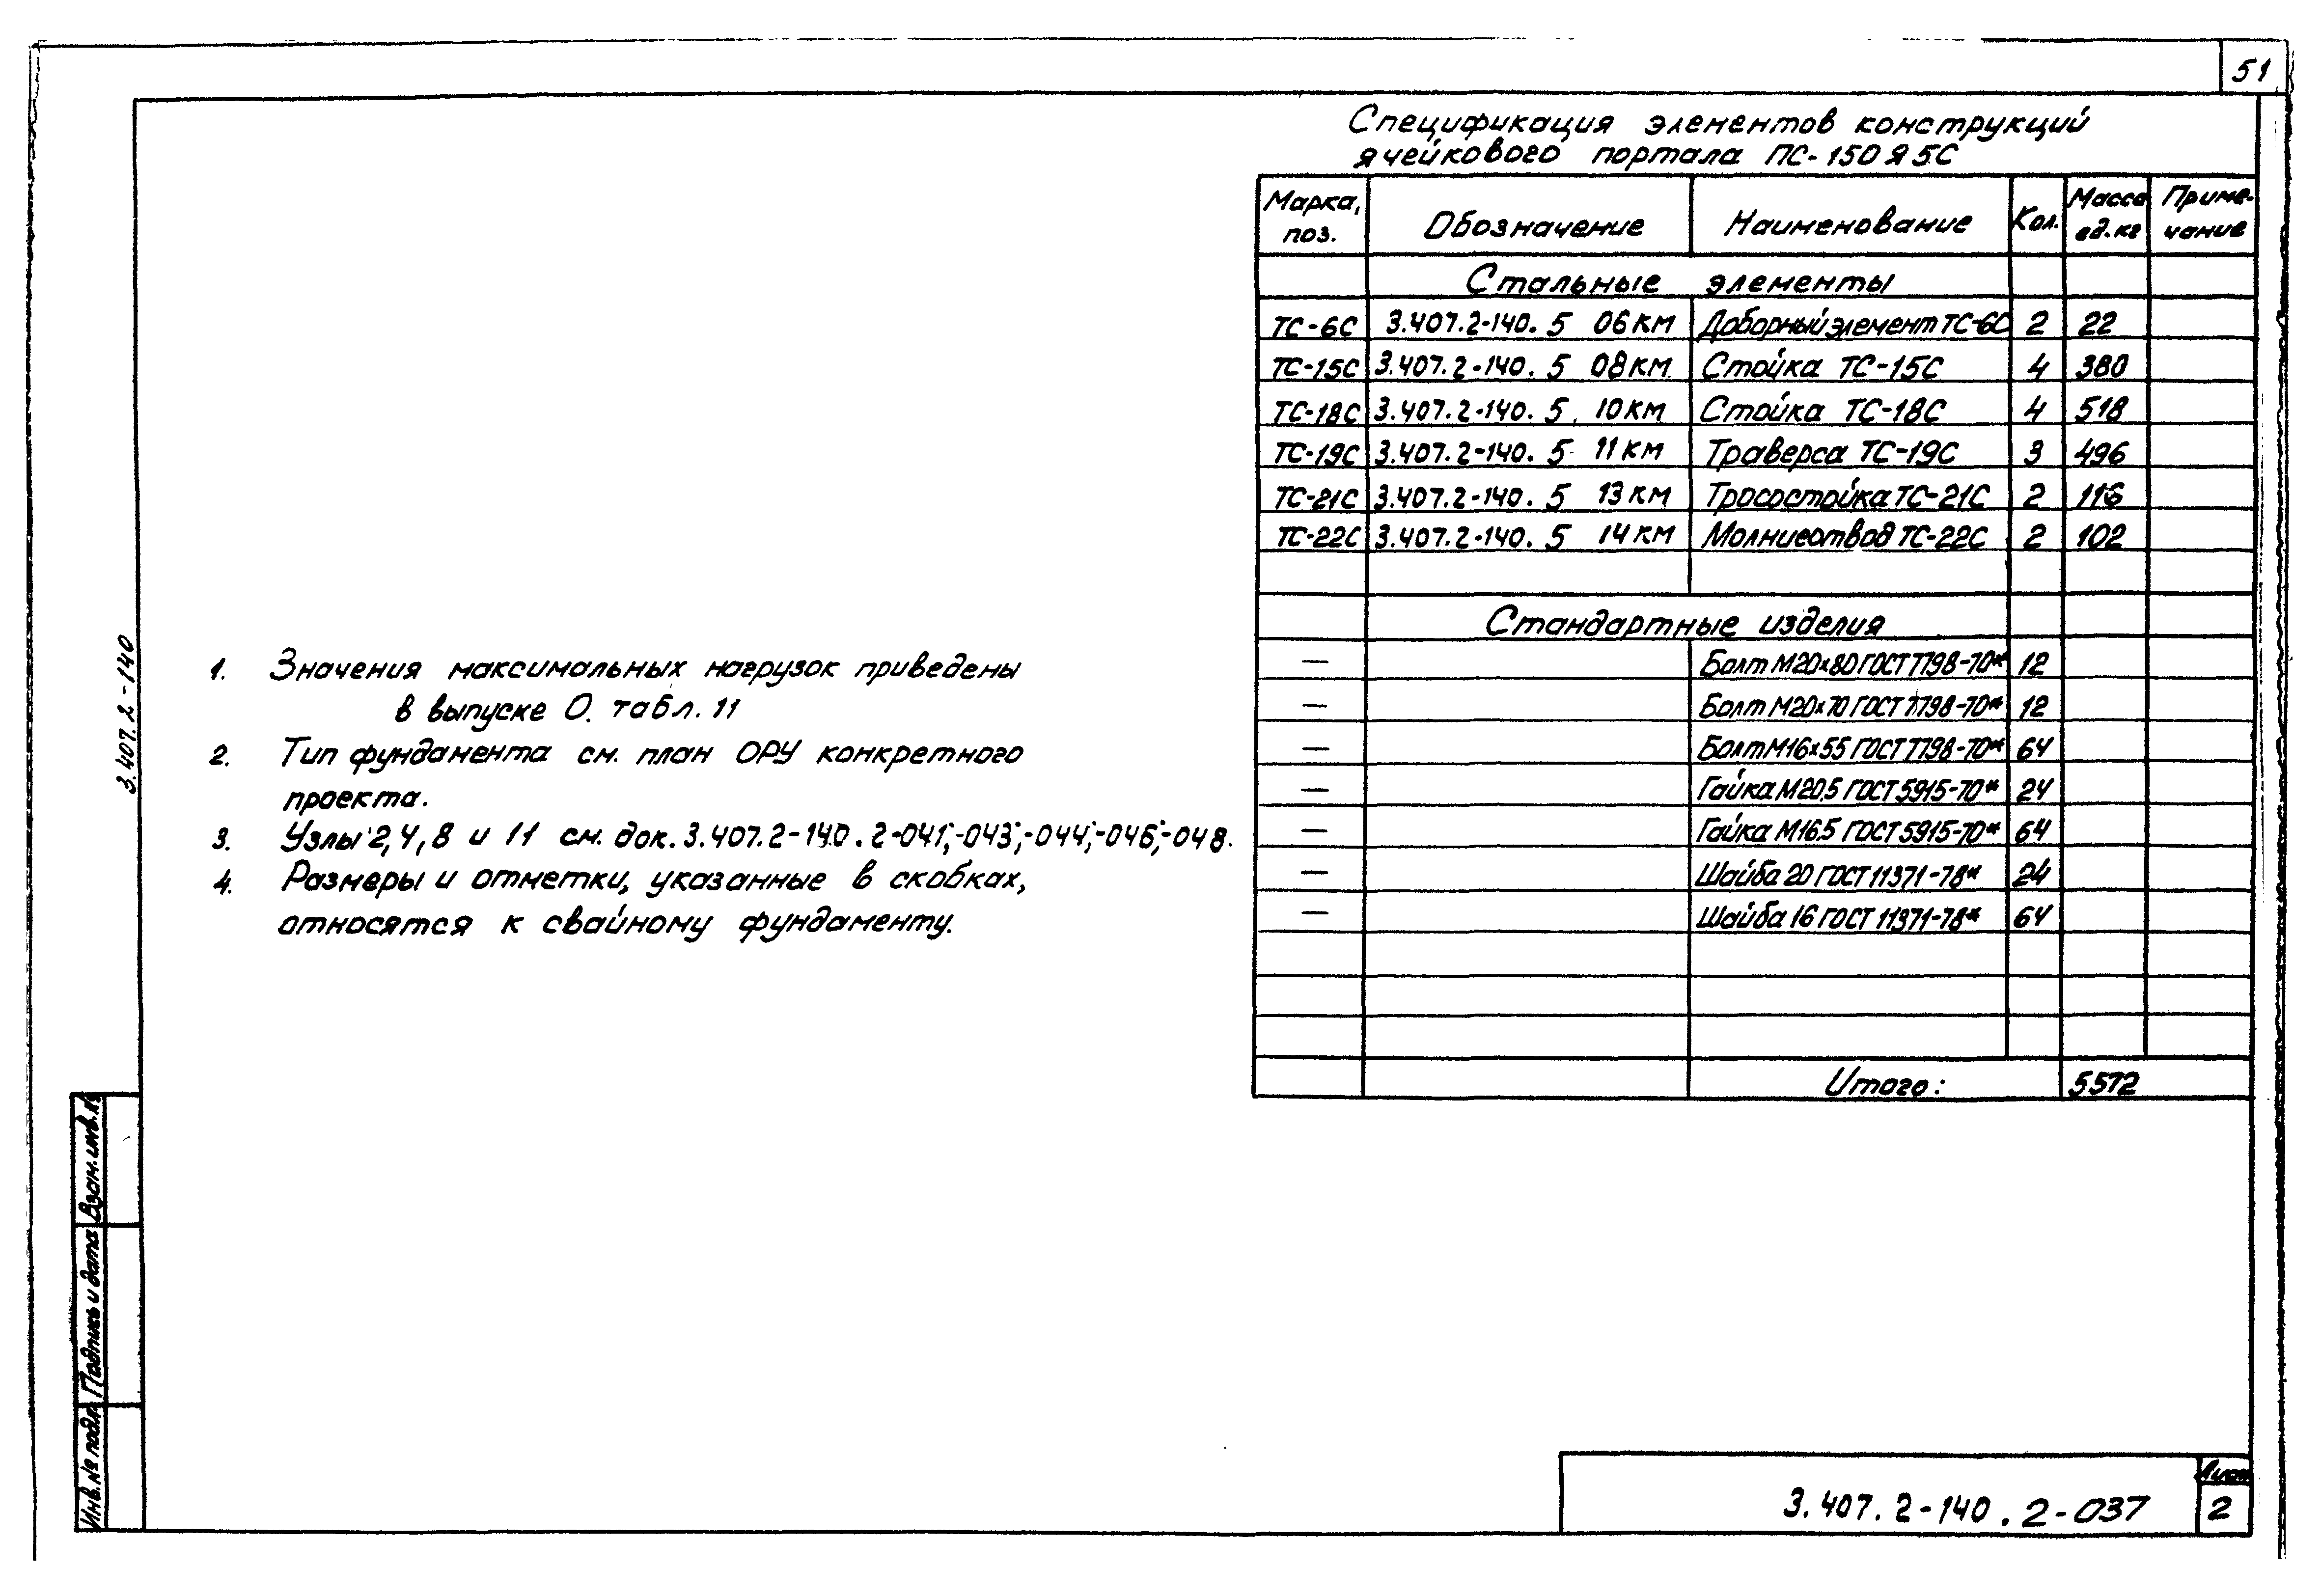 51
Спецификация элементов конструкций
ячейкового портала ПС-150Я5С
Марка, поз. Обозначение Наименование Кол. Масса ед. кг Примечание
Стальные элементы
ТС-6С 3.407.2-140.5 06КМ Доборный элемент ТС-6С 2 22
ТС-15С 3.407.2-140.5 08КМ Стойка ТС-15С 4 380
ТС-18С 3.407.2-140.5 10КМ Стойка ТС-18С 4 518
ТС-19С 3.407.2-140.5 11КМ Траверса ТС-19С 3 496
ТС-21С 3.407.2-140.5 13КМ Тросостойка ТС-21С 2 116
ТС-22С 3.407.2-140.5 14КМ Молниеотвод ТС-22С 2 102
Стандартные изделия
— Болт М20х80 ГОСТ 7798-70* 12
— Болт М20х70 ГОСТ 7798-70* 12
— Болт М16х55 ГОСТ 7798-70* 64
— Гайка М20.5 ГОСТ 5915-70* 24
— Гайка М16.5 ГОСТ 5915-70* 64
— Шайба 20 ГОСТ 11371-78* 24
— Шайба 16 ГОСТ 11371-78* 64
Итого: 5572
1. Значения максимальных нагрузок приведены
в выпуске 0. табл. 11
2. Тип фундамента см. план ОРУ конкретного
проекта.
3. Узлы 2, 4, 8 и 11 см. док. 3.407.2-140.2-041; -043; -044; -046; -048.
4. Размеры и отметки, указанные в скобках,
относятся к свайному фундаменту.
3.407.2-140
Взам. инв. №
Подпись и дата
Инв. № подл.
3.407.2-140.2-037
Лист
2